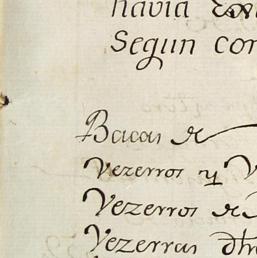 havia
Segun con
Bacas de
Vezerros y V
Vezerros de
Vezerras dhr